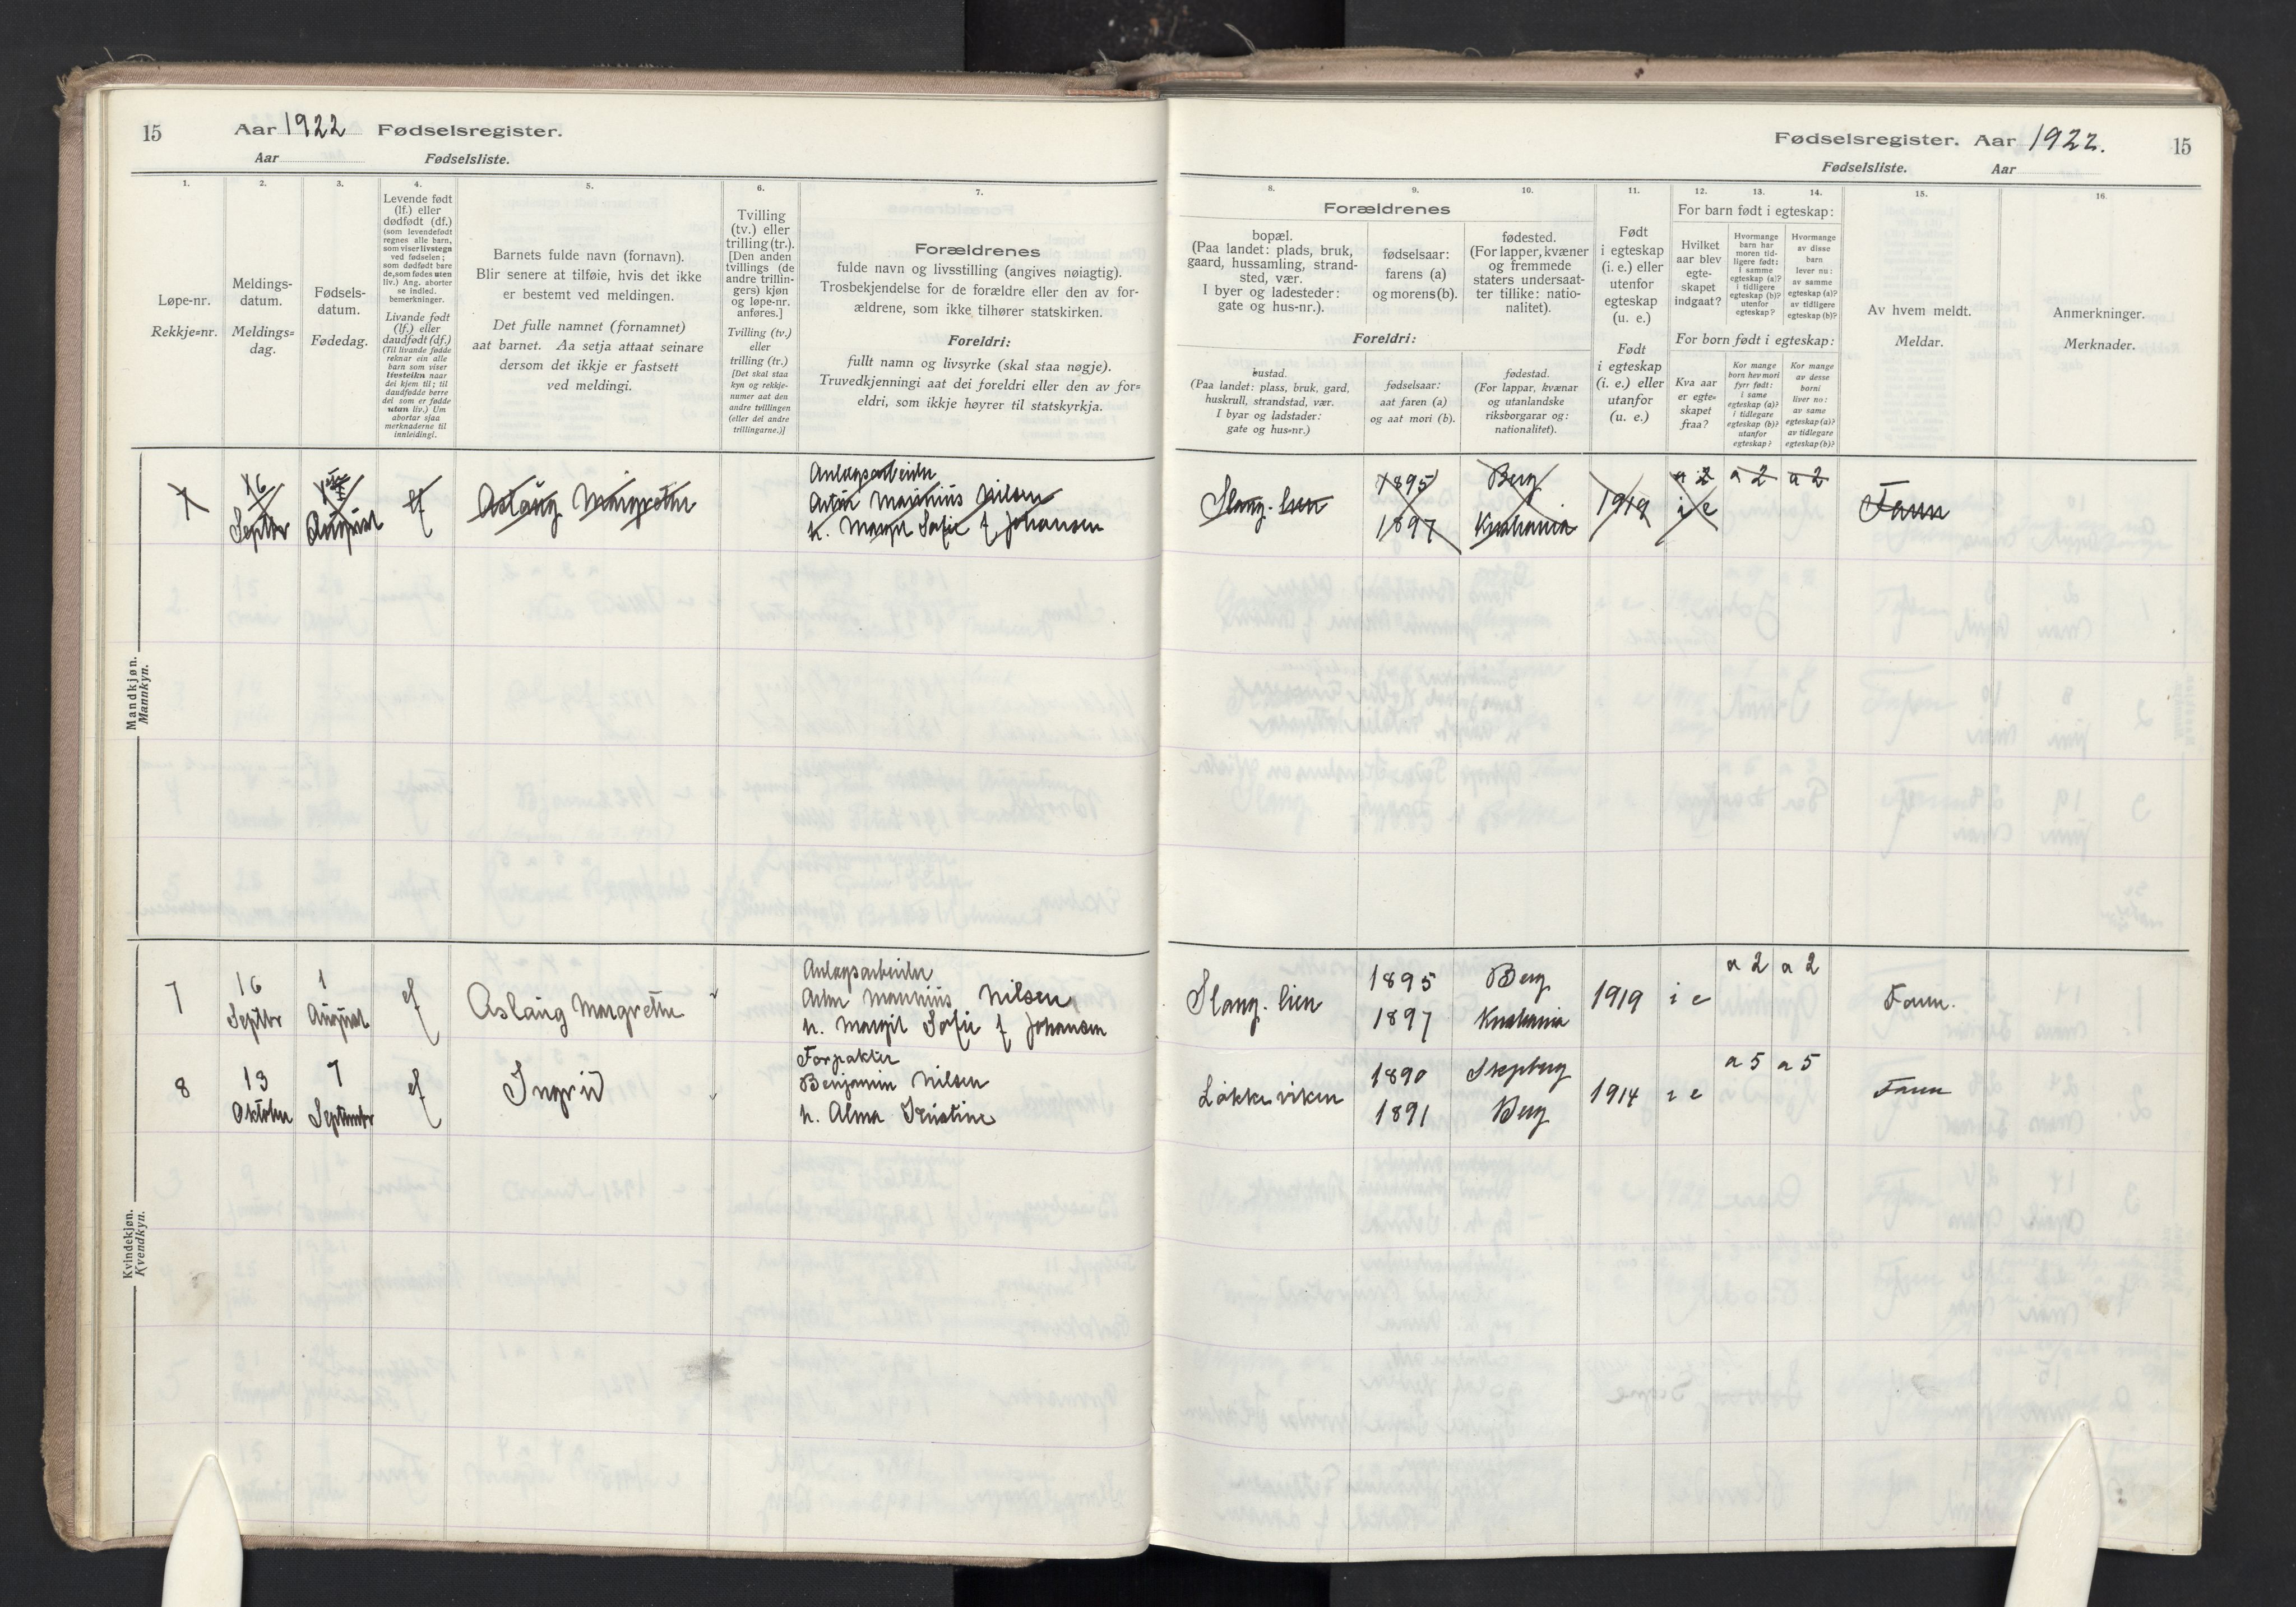 15 Aar 1922 Fødselsregister.
Aar Fødselsliste.
Fødselsregister. Aar 1922. 15
Fødselsliste. Aar
1. 2. 3. 4. 5. 6. 7.
Løpe-nr.
Rekkje=nr.
Meldings-
datum.
Meldings=
dag.
Fødsels-
datum.
Fødedag.
Levende født
(lf.) eller
dødfødt (df.)
(som levendefødt
regnes alle barn,
som viser livstegn
ved fødselen;
som dødfødt bare
de, som fødes uten
liv.) Ang. aborter
se indled.
bemerkninger.
Livande født
(lf.) eller
daudfødt (df.)
(Til livande fødde
reknar ein alle
barn som viser
livsteikn naar
dei kjem til; til
daudfødde berre
dei som er fødde
utan liv.) Um
abortar sjaa
merknaderne til
innleidingi.
Barnets fulde navn (fornavn).
Blir senere at tilføie, hvis det ikke
er bestemt ved meldingen.
Det fulle namnet (fornamnet)
aat barnet. Aa setja attaat seinare
dersom det ikkje er fastsett
ved meldingi.
Tvilling
(tv.) eller
trilling (tr.).
[Den anden
tvillings (de
andre trillin-
gers) kjøn
og løpe-nr.
anføres.]
Tvilling (tv.)
eller
trilling (tr.)
[Det skal staa
kyn og rekkje-
numer aat den
andre tvillingen
(eller dei andre
trillingarne.)]
Forældrenes
fulde navn og livsstilling (angives nøiagtig).
Trosbekjendelse for de forældre eller den av for-
ældrene, som ikke tilhører statskirken.
Foreldri:
fullt namn og livsyrke (skal staa nøgje).
Truvedkjenningi aat dei foreldri eller den av for=
eldri, som ikkje høyrer til statskyrkja.
8. 9. 10. 11. 12. 13. 14. 15. 16.
Forældrenes
bopæl.
(Paa landet: plads, bruk,
gaard, hussamling, strand-
sted, vær.
I byer og ladesteder:
gate og hus-nr.).
fødselsaar:
farens (a)
og morens (b).
fødested.
(For lapper, kvæner
og fremmede
staters undersaat-
ter tillike: natio-
nalitet).
Foreldri:
bustad.
(Paa landet: plass, bruk, gard,
huskrull, strandstad, vær.
I byar og ladstader:
gate og hus=nr.)
fødselsaar:
aat faren (a)
og aat mori (b).
fødestad.
(For lappar, kvænar
og utanlandske
riksborgarar og:
nationalitet).
Født
i egteskap
(i. e.) eller
utenfor
egteskap
(u. e.)
Født
i egteskap
(i. e.) eller
utanfor
egteskap
(u. e.)
For barn født i egteskap:
Hvilket
aar blev
egte-
skapet
indgaat?
Hvormange
barn har
moren tid-
ligere født:
i samme
egteskap (a)?
i tidligere
egteskap (b)?
utenfor
egteskap?
Hvormange
av disse
barn
lever nu:
av samme
egteskap (a)?
av tidligere
egteskap (b)?
For born født i egteskap:
Kva aar
er egte=
skapet
fraa?
Kor mange
born hev mori
fyrr født:
i same
egteskap (a)?
i tidlegare
egteskap (b)?
utanfor
egteskap?
Kor mange
av desse
borni
liver no:
av same
egteskap (a)?
av tidlegare
egteskap (b)?
Av hvem meldt.
Meldar.
Anmerkninger.
Merknader.
Mandkjøn.
Mannkyn.
7 16 Septbr August lf Aslaug Margrethe
Anlægsarbeider
Artur Marinius Nilsen
h. Margit Sofie f Johansen
Slang. lien 1895 Berg 1919 i e a 2 a 2 a 2 Faren
1897 Kristiania
Kvindekjøn.
Kvendkyn.
7 16 Septbr 1 August lf Aslaug Margrethe
Anlægsarbeider
Artur Marinius Nilsen
h. Margit Sofie f Johansen
Slang. lien 1895 Berg 1919 i e a 2 a 2 Faren.
1897 Kristiania
8 13 Oktober 7 September lf Ingrid
Forpakter
Benjamin Nilsen
h. Alma Kristine
Løkkeviken 1890 Skjeberg 1914 i e a 5 a 5 Faren
1891 Berg